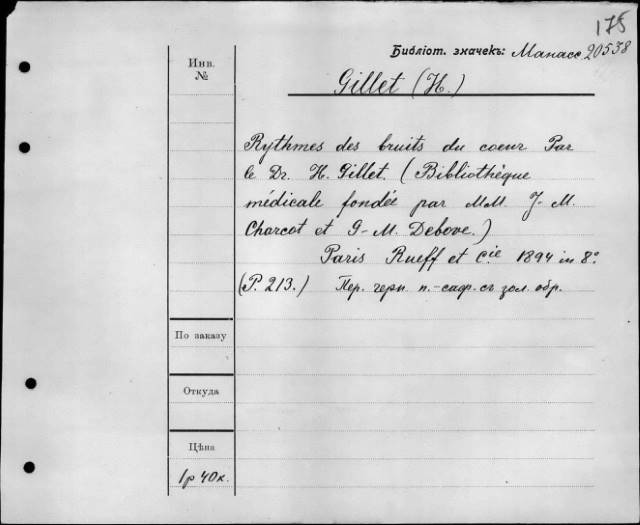 175
Библіот. значекъ: Манасс. 20538
Инв.
№
Gillet (H.)
Rythmes des bruits du coeur Par
le Dr. H. Gillet. (Bibliothèque
médicale fondée par MM. J-M.
Charcot et G-M. Debove.)
Paris Rueff et Cie. 1894 in 8º
(P. 213.) Пер. черн. п.-сафр. съ зол. обр.
По заказу
Откуда
Цѣна
1р 40к.